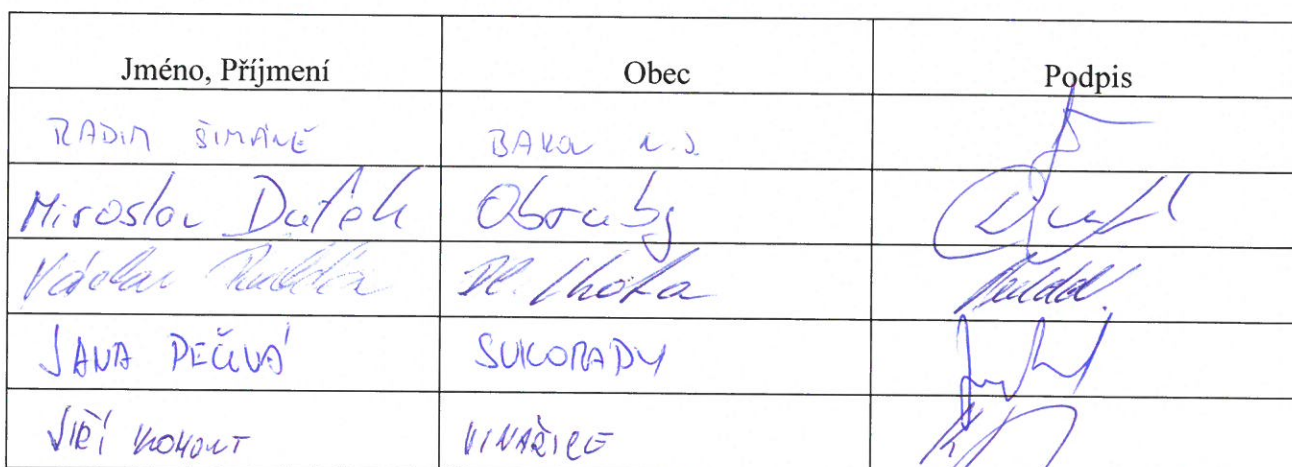 Jméno, Příjmení Obec Podpis
RADIM ŠIMÁNĚ BAKOV N.J.
Miroslav Dufek Obruby
Václav Dl. Lhota
JANA PEČIVÁ SUKORADY
JIŘÍ KOHOUT VINAŘICE